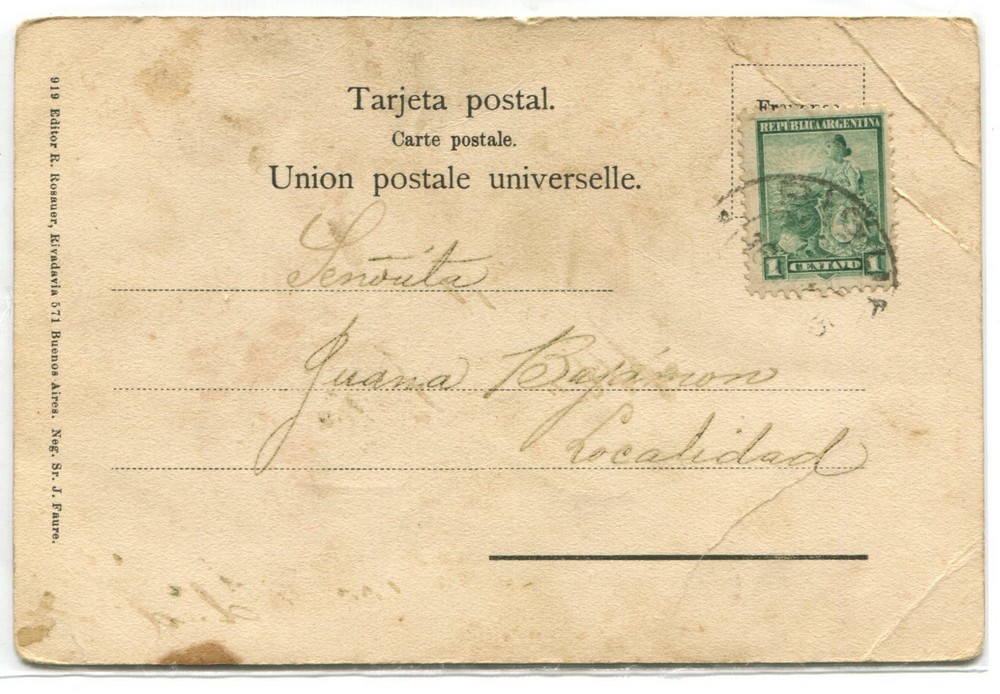 Tarjeta postal.
Carte postale.
Union postale universelle.
REPUBLICA ARGENTINA
1 CENTAVO 1
Señorita
Juana
Localidad
919 Editor R. Rosauer, Rivadavia 571 Buenos Aires. Neg. Sr. J. Faure.